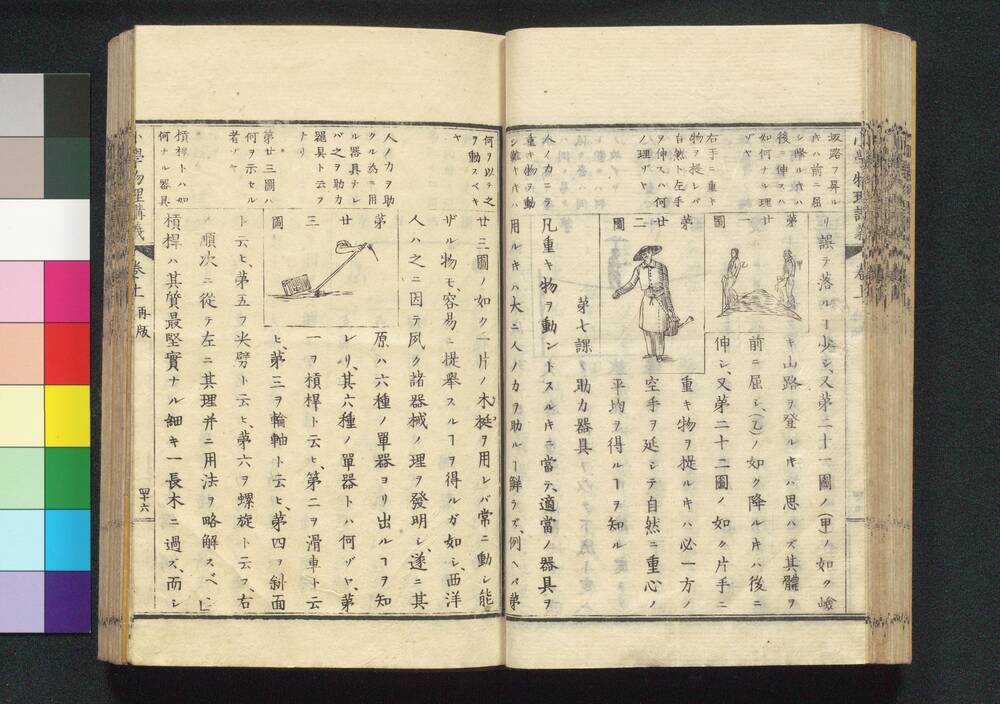 坂路ヲ昇ル
キハ前ニ屈
シ降ルキハ
後ニ伸スハ
如何ナル理
ゾヤ
右手ニ重キ
物ヲ提レバ
自然ト左手
ヲ伸スハ何
ノ理ゾヤ
人ノ力ニテ
重キ物ヲ動
シ難キキハ
リ誤テ落ルヿ少シ、又第二十一圖ノ(甲)ノ如ク嶮
第廿一圖
キ山路ヲ登ルキハ思ハズ其體ヲ
前ニ屈シ、(乙)ノ如ク降ルキハ後ニ
伸シ、又第二十二圖ノ如ク片手ニ
第廿二圖
重キ物ヲ提ルキハ必一方ノ
空手ヲ延シテ自然ニ重心ノ
平均ヲ得ルヿヲ知ル
第七課 助力器具
凡重キ物ヲ動ントスルキニ當テ、適當ノ器具ヲ
用ルキハ大ニ人ノ力ヲ助ルヿ鮮ラズ、例ヘバ第
何ヲ以テ之
ヲ動スベキ
ヤ
人ノ力ヲ助
クル為ニ用
ル器具ナレ
バ之ヲ助力
器具ト云フ
ナリ
第廿三圖ハ
何ヲ示セル
者ゾヤ
槓桿トハ如
何ナル器具
廿三圖ノ如ク一片ノ木梃ヲ用レバ常ニ動シ能
ザル物モ、容易ニ提擧スルヿヲ得ルガ如シ、西洋
人ハ之ニ因テ夙ク諸器械ノ理ヲ發明シ、遂ニ其
第廿三圖
原ハ六種ノ單器ヨリ出ルヿヲ知
レリ、其六種ノ單器トハ何ゾヤ、第
一ヲ槓桿ト云ヒ、第二ヲ滑車ト云
ヒ、第三ヲ輪軸ト云ヒ、第四ヲ斜面
ト云ヒ、第五ヲ尖劈ト云ヒ、第六ヲ螺旋ト云フ、右
ノ順次ニ從テ左ニ其理并ニ用法ヲ略解スベシ
槓桿ハ其質最堅實ナル細キ一長木ニ過ズ、而シ
小學物理講義 卷上 再版
四十六